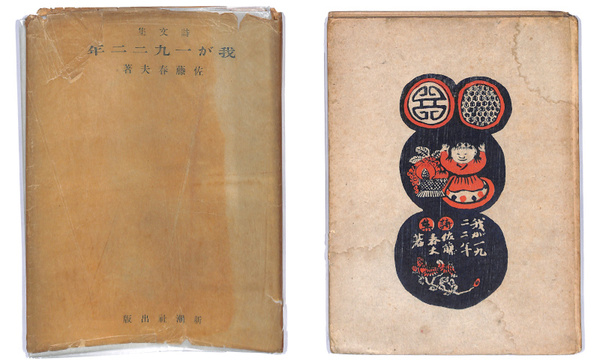 詩文集
我が一九二二年
佐藤春夫著
新潮社出版
我が一九
二二年
詩集
佐藤
春夫
著